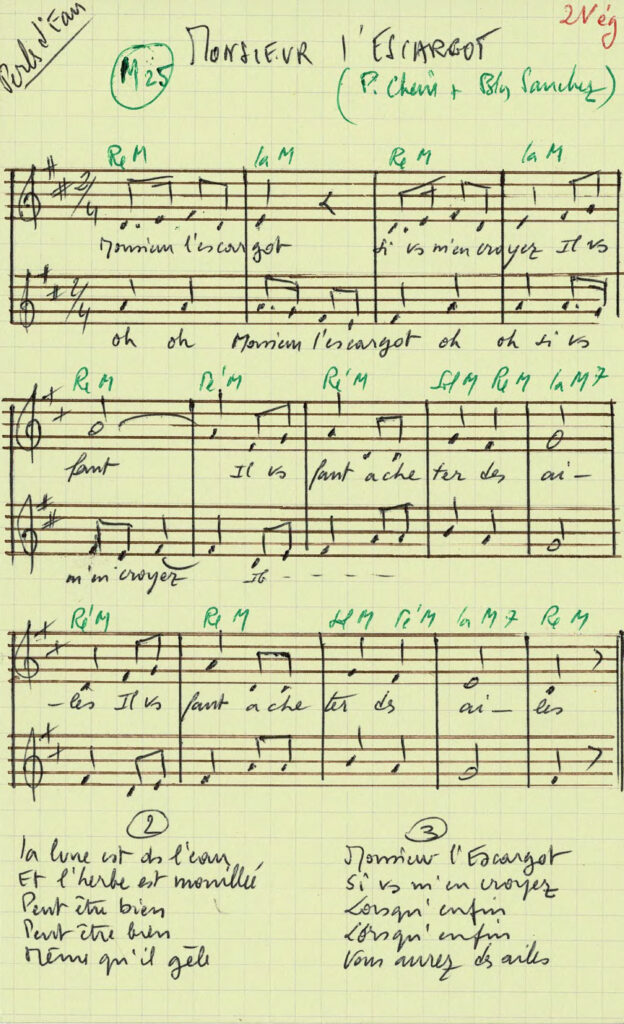 Perle d'Eau
MONSIEUR l'ESCARGOT
2 Vég
M 25
(P. Chêne + Blas Sanchez)
Re M la M Re M la M
2/4
Monsieur l'escargot si vs m'en croyez Il vs
2/4
oh oh Monsieur l'escargot oh oh si vs
Re M Ré M Sol M Re M la M 7
faut Il vs faut ache ter des ai-
m'en croyez Il - - - - -
Ré M Re M Sol M Ré M la M 7 Re M
-les Il vs faut ache ter ds ai- les
2
la lune est ds l'eau
Et l'herbe est mouillée
Peut être bien
Peut être bien
Même qu'il gèle
3
Monsieur l'Escargot
Si vs m'en croyez
Lorsqu'enfin
Lorsqu'enfin
Vous aurez des ailes